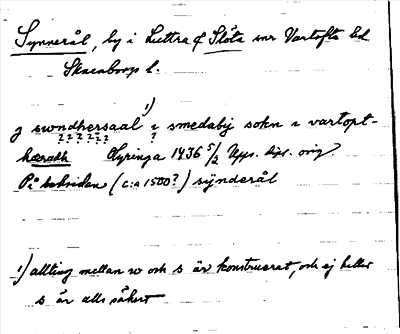 Synnerål, by i Luttra o Slöta snr Vartofta hd
Skaraborgs l.
1)
j swndhersaal i smedabij sokn i vartopt-
? ? ? ? ? ? ?
hæradh Lyringa 1436 5/2 Upps. dipl. orig
På baksidan (c:a 1500?) sijnderål
1) allting mellan w och s är konstruerat, och ej heller
s är allt säkert